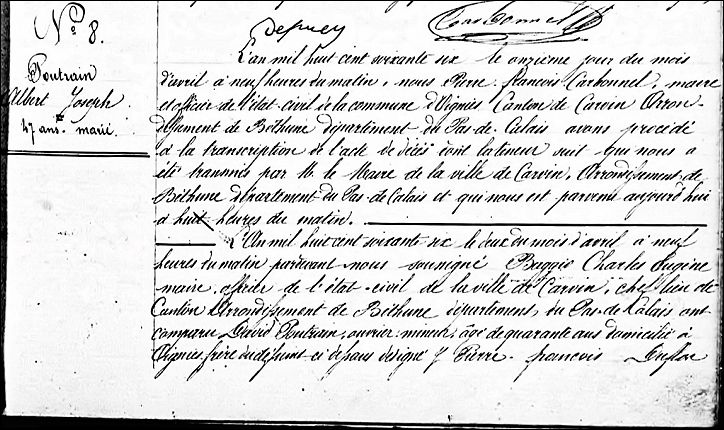 Depuey
Carbonnel
N° 8.
Poutrain
Albert Joseph.
47 ans. marié.
L'an mil huit cent soixante six le onzième jour du mois
d'avril à neuf heures du matin, nous Pierre François Carbonnel, maire
et officier de l'état civil de la commune d'Oignies Canton de Carvin Arron-
dissement de Béthune département du Pas-de-Calais avons procédé
à la transcription de l'acte de décès dont la teneur suit qui nous a
été transmis par M. le Maire de la ville de Carvin, Arrondissement de
Béthune département du Pas-de-Calais et qui nous est parvenu aujourd'hui
à huit heures du matin.
L'An mil huit cent soixante six le deux du mois d'avril à neuf
heures du matin pardevant nous soussigné Buggio Charles Eugène
maire, officier de l'état-civil de la ville de Carvin, chef lieu de
Canton Arrondissement de Béthune département du Pas-de-Calais ont
comparu David Poutrain, ouvrier mineur, âgé de quarante ans domicilié à
Oignies frère du défunt ci dessous désigné & Pierre-François